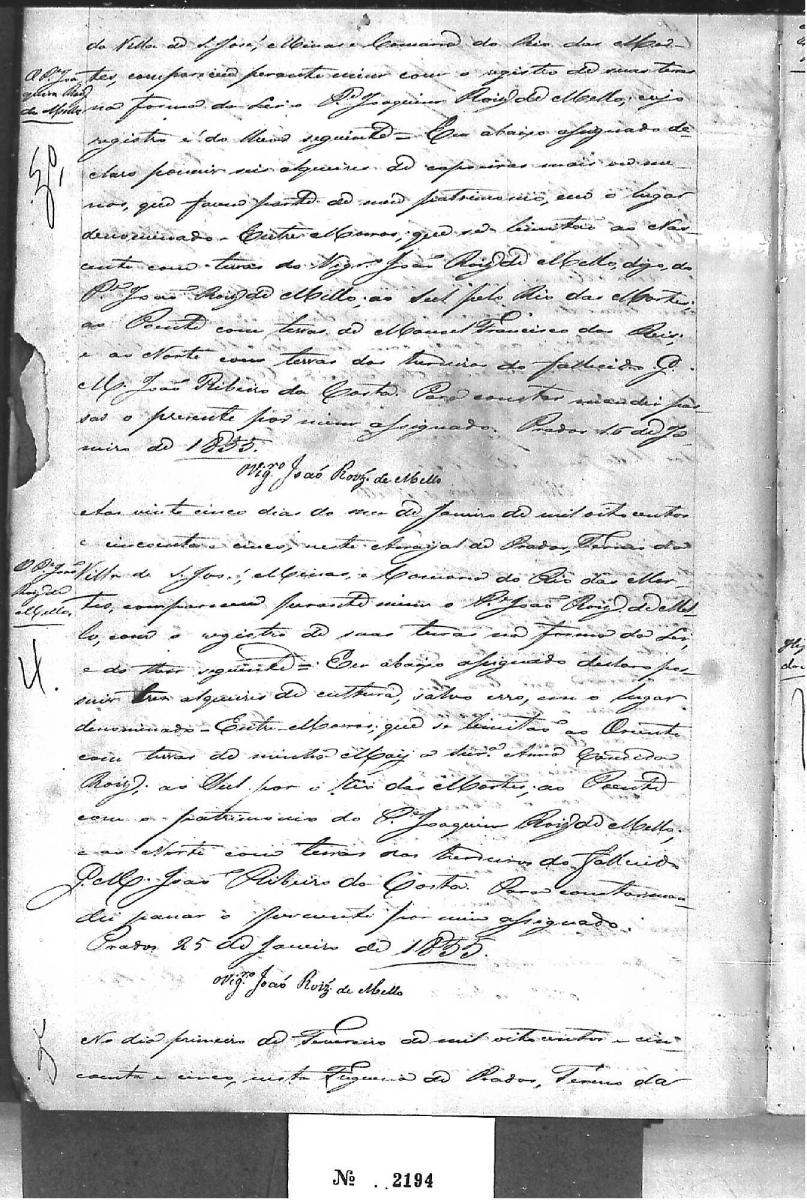 da Villa de S. José, Minas e Comarca do Rio das Mor-
tes, compareceu perante mim com o registro de suas terras
na forma da Lei o Pe. Joaquim Roiz' de Mello, cujo
registro é do theor seguinte = Eu abaixo assignado de-
claro possuir seis alqueires de capoeiras mais ou me-
nos, que fazem parte de meu patrimonio, em o lugar
denominado - Entre Morros, que se limitão ao Nas-
cente com terras do Vigr.º João Roiz' de Mello, digo, do
P.e João Roiz' de Mello; ao Sul pelo Rio das Mortes;
ao Poente com terras de Manoel Francisco dos Reis;
e ao Norte com terras dos herdeiros do fallecido G.
M. João Ribeiro da Costa. Para constar mandei pas-
sar o presente por mim assignado. Prados 16 de Ja-
neiro de 1855.
O Vigr.º João Roiz' de Mello
O P.e Joa-
quim Roiz'
de Mello
3.
Aos vinte cinco dias do mez de Janeiro de mil oito centos
e cincoenta e cinco, neste Arraial de Prados, Termo da
Villa de S. José, Minas, e Comarca do Rio das Mor-
tes, compareceu perante mim o P.e João Roiz' de Mel-
lo, com o registro de suas terras na forma da Lei,
e do theor seguinte = Eu abaixo assignado declaro pos-
suir tres alqueires de cultura, salvo erro, em o lugar
denominado - Entre Morros, que se limitão ao Oriente
com terras de minha May a Senr.ª Anna
Roiz'; ao Sul por o Rio das Mortes; ao Poente
com o patrimonio do P.e Joaquim Roiz' de Mello;
e ao Norte com terras dos herdeiros do fallecido
G. M. João Ribeiro da Costa. Para constar man-
dei passar o presente por mim assignado.
Prados 25 de Janeiro de 1855.
O Vigr.º João Roiz' de Mello
O P.e João
Roiz' de
Mello
4.
No dia primeiro de Fevereiro de mil oito centos e cin-
coenta e cinco, nesta Freguesia de Prados, Termo da
5
Nº 2194